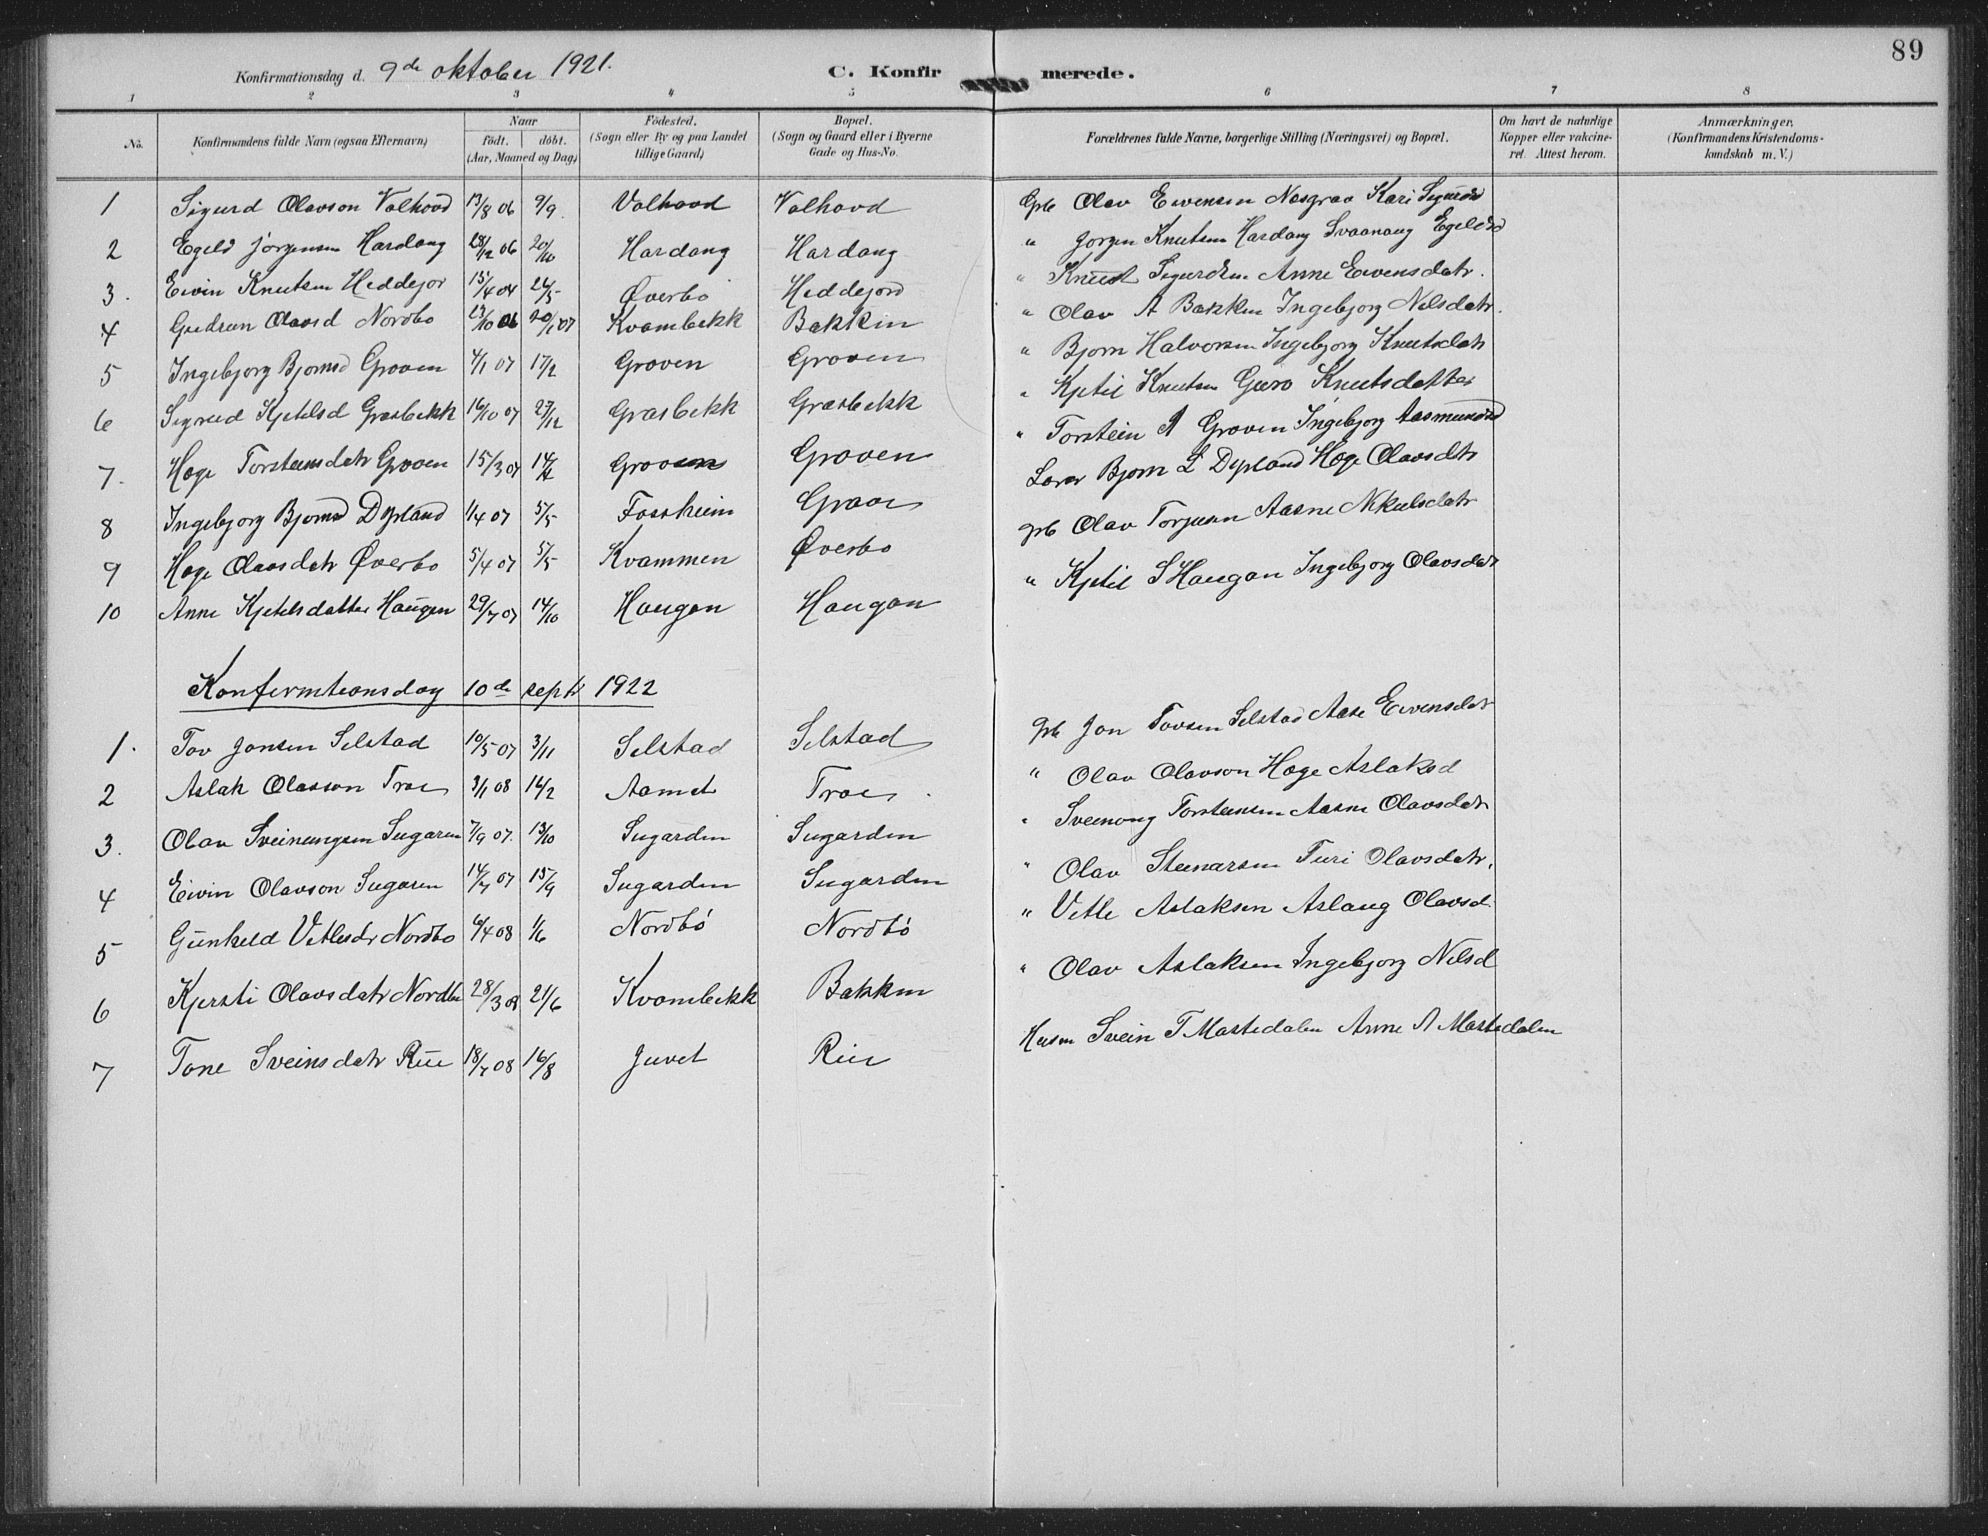 89
Konfirmationsdag d. 9de oktober 1921.
C. Konfirmerede.
1 2 3 4 5 6 7 8
No.
Konfirmandens fulde Navn (ogsaa Efternavn)
Naar
födt. döbt.
(Aar, Maaned og Dag)
Födested.
(Sogn eller By og paa Landet tillige Gaard)
Bopæl.
(Sogn og Gaard eller i Byerne Gade og Hus-No.
Forældrenes fulde Navne, borgerlige Stilling (Næringsvei) og Bopæl.
Om havt de naturlige Kopper eller vakcineret. Attest herom.
Anmærkninger.
(Konfirmandens Kristendomskundskab m. V.)
1 Sigurd Olavson Valhovd 13/8 06 9/9. Valhovd Valhovd Gpb Olav Eivensen Nesgraa Kari Sigurdsd
2 Egeld Jørgensen Hardang 28/12 06 20/10 Hardang Hardang " Jorgen Knutsen Hardang Svaanaug Egeldsd
3. Eivin Knutsen Heddejor 15/4 04 24/5 Øverbö Heddejord " Knut Sigurdsen Anne Eivensdatr.
4 Gudrun Olavsd Nordbö 23/10 06 20/1 07 Kvambekk Bakken " Olav A Bakken Ingebjorg Nilsdatr.
5 Ingebjorg Bjornsd Groven 4/1 07 17/2 Groven Groven " Bjorn Halvorsen Ingebjorg Knutsdatr
6 Sigrid Kjetelsd Grasbekk 16/10 07 27/12 Grasbekk Grasbekk " Kjetil Knutsen Guro Knutsdatter
7. Hæge Torsteinsdatr Groven 15/3 07 14/4 Groven Groven " Torstein A Groven Ingebjorg Aasmundsd
8 Ingebjorg Bjornsd Dyrland 1/4 07 5/5 Fossheim Graae Lærer Bjorn L Dyrland Hæge Olavsdatr
9 Hæge Olavsdatr Øverbo 5/4 07 5/5 Kvammen Øverbo gpb Olav Torjusen Aasne Nikulsdatr
10 Anne Kjetelsdatter Haugen 29/7 07 14/10 Haugan Haugan " Kjetil S Haugan Ingebjorg Olavsdatr
Konfirmtionsdag 10de septr 1922
1. Tov Jonsen Selstad 10/5 07 3/11 Selstad Selstad gpb Jon Tovsen Selstad Aase Eivensdatr
2 Aslak Olavson Trae 3/1 08 14/2 Aamot Trae. " Olav Olavson Hæge Aslaksd
3. Olav Sveinungsen Sugaren 7/9 07. 13/10 Sugarden Sugarden " Sveinong Torsteinsen Aasne Olavsdatr
4 Eivin Olavson Sugaren 14/7 07 15/9 Sugarden Sugarden " Olav Steinarsen Turi Olavsdatr.
5 Gunheld Vetlesdr Nordbo 6/4 08 1/6 Nordbö Nordbö " Vetle Aslaksen Aslaug Olavsd.
6 Kjersti Olavsdatr Nordbø 28/3 08 21/6 Kvambekk Bakken " Olav Aslaksen Ingebjorg Nilsd
7 Tone Sveinsdatr Rue 18/7 08 16/8 Juvet Rue Husm Svein T Mastedalen Anne A Mastedalen